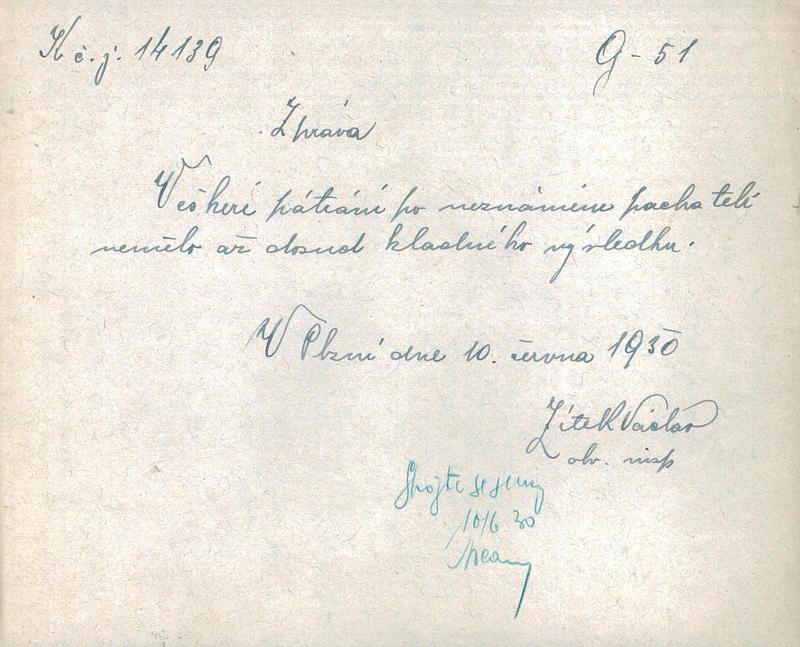 K č.j. 14139 G - 51
Zpráva
Veškeré pátrání po neznámém pachateli
nemělo až dosud kladného výsledku.
V Plzni dne 10. června 1930
Zítek Václav
obv. insp
10/6 30